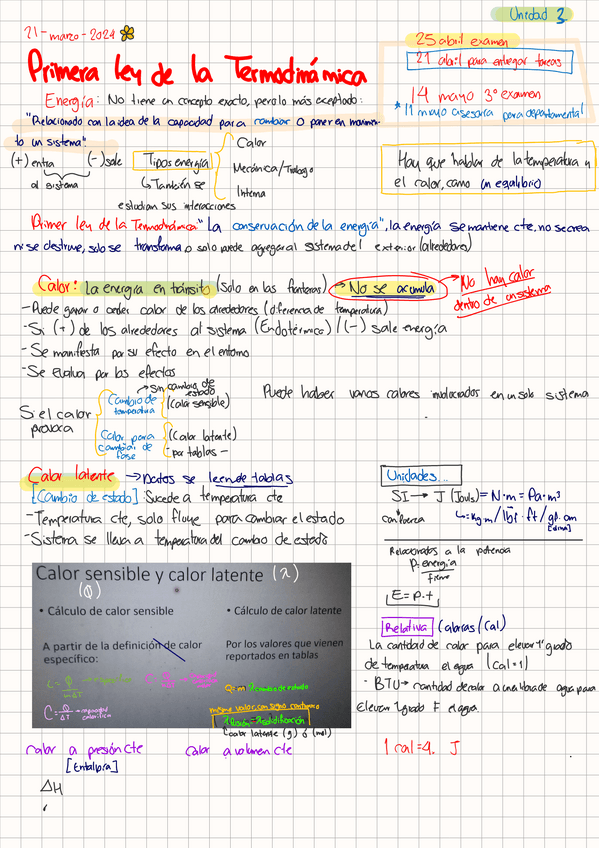 Unidad 3
21-marzo-2024
25 abril examen
21 abril para entregar tareas
14 mayo 3° examen
*11 mayo asesoria para departamental
Primera ley de la Termodinámica
Energía: No tiene un concepto exacto, pero lo más aceptado:
"Relacionado con la idea de la capacidad para cambiar o poner en movimien-
to un sistema".
(+) entra (-) sale
al sistema
Tipos energía
↳ También se
estudian sus interacciones
Calor
Mecánica/Trabajo
Interna
Hay que hablar de la temperatura y
el calor, como un equilibrio
Primer ley de la Termodinámica "La conservación de la energía", la energía se mantiene cte, no se crea
ni se destruye, solo se transforma o solo puede agregar al sistema del exterior (alrededores)
Calor: La energía en tránsito (solo en las fronteras) → No se acumula
→ No hay calor
dentro de un sistema
-Puede ganar o ceder calor de los alrededores (diferencia de temperatura)
-Si (+) de los alrededores al sistema (Endotérmico) / (-) sale energía
-Se manifiesta por su efecto en el entorno
-Se evalua por los efectos
Si el calor
provoca
Cambio de
temperatura
→ Sin cambio de
estado
(Calor sensible)
Calor para
cambiar de
fase
(Calor latente)
-por tablas-
Puede haber varios calores involucrados en un solo sistema
Calor latente → Datos se leen de tablas
[Cambio de estado] Sucede a temperatura cte
-Temperatura cte, solo fluye para cambiar el estado
-Sistema se lleva a temperatura del cambio de estado
Unidades...
SI → J (Jouls) = N·m = Pa·m³
con fuerza ↳ = kg m / lbf · ft / gf · cm
Relacionados a la potencia
P = energía
tiempo
E = P·t
Relativa (calorías/cal)
La cantidad de calor para elevar 1° grado
de temperatura el agua (cal=1)
· BTU → cantidad de calor a una libra de agua para
Elevar 1 grado F el agua.
1 cal = 4. J
Calor sensible y calor latente (λ)
(Q)
• Cálculo de calor sensible
A partir de la definición de calor
específico:
• Cálculo de calor latente
Por los valores que vienen
reportados en tablas
C = Q
m ΔT
C = Q
n ΔT
→ capacidad
calorifica
Q = m λ cambio de estado
mismo valor, con signo contrario
λ fusión = -λ solidificación
Calor latente (g) ó (mol)
calor a presión cte
[Entalpia]
ΔH
calor a volumen cte